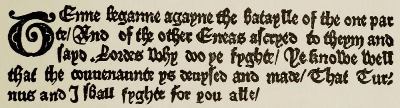 TEnne beganne agayne the bataylle of the one par
te/ And of the other Eneas ascryed to theym and
sayd. Lordes why doo ye fyghte/ Ye knowe well
that the couuenaunte ys deuysed and made/ That Tur-
nus and I shall fyghte for you alle/